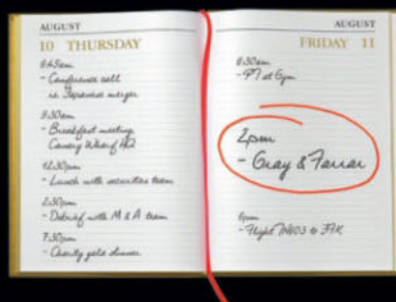 AUGUST
10 THURSDAY
6:45am
- Conference call
re. Japanese merger
8:30am
- Breakfast meeting
Canary Wharf HQ
12:30pm
- Lunch with securities team
2:30pm
- Debrief with M & A team
7:30pm
- Charity gala dinner
AUGUST
FRIDAY 11
6:30am
- PT at Gym
2pm
- Gray & Farrar
6pm
- Flight to JFK